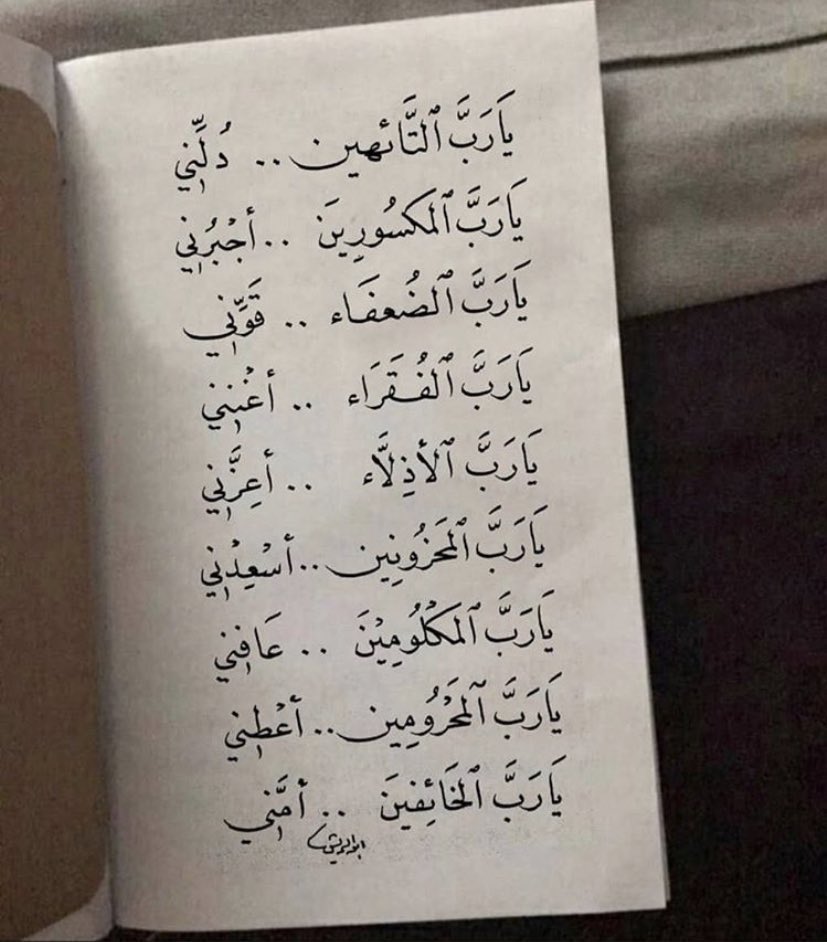 يَارَبَّ ٱلتَّائهين .. دُلَّنِي
يَارَبَّ ٱلمَكسُورِينَ .. أجْبُرنِي
يَارَبَّ ٱلضُعفَاء .. قَوِّنِي
يَارَبَّ ٱلفُقَرَاء .. أغْنِنِي
يَارَبَّ ٱلأذِلَّاء .. أعِزَّنِي
يَارَبَّ ٱلمَحزُونِين .. أسْعِدْنِي
يَارَبَّ ٱلمَكْلُومِيْنَ .. عَافِنِي
يَارَبَّ ٱلمَحْرُومِين .. أعْطِنِي
يَارَبَّ ٱلخَائِفينَ .. أمَّنِّي